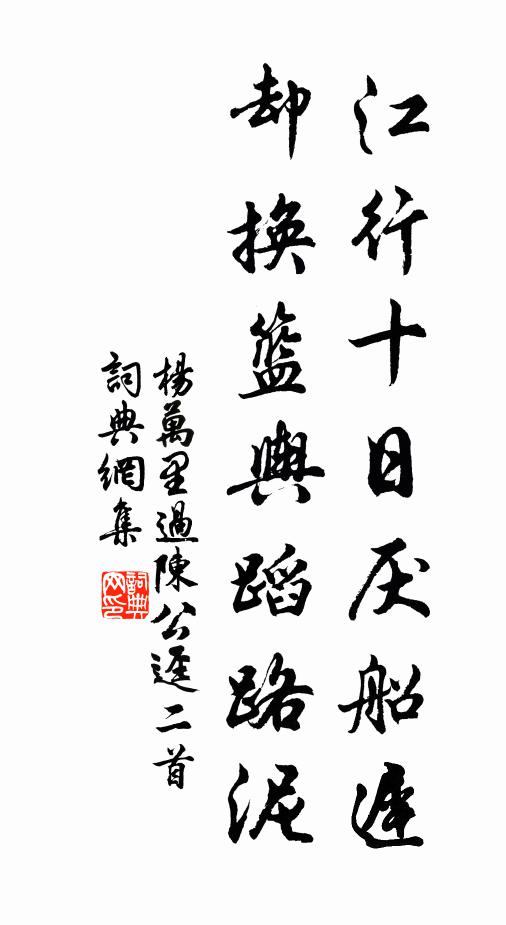 江行十日厌船遲
却換籃輿蹈路泥
楊萬里過陳公遲二首
詞典網集
詞典网印